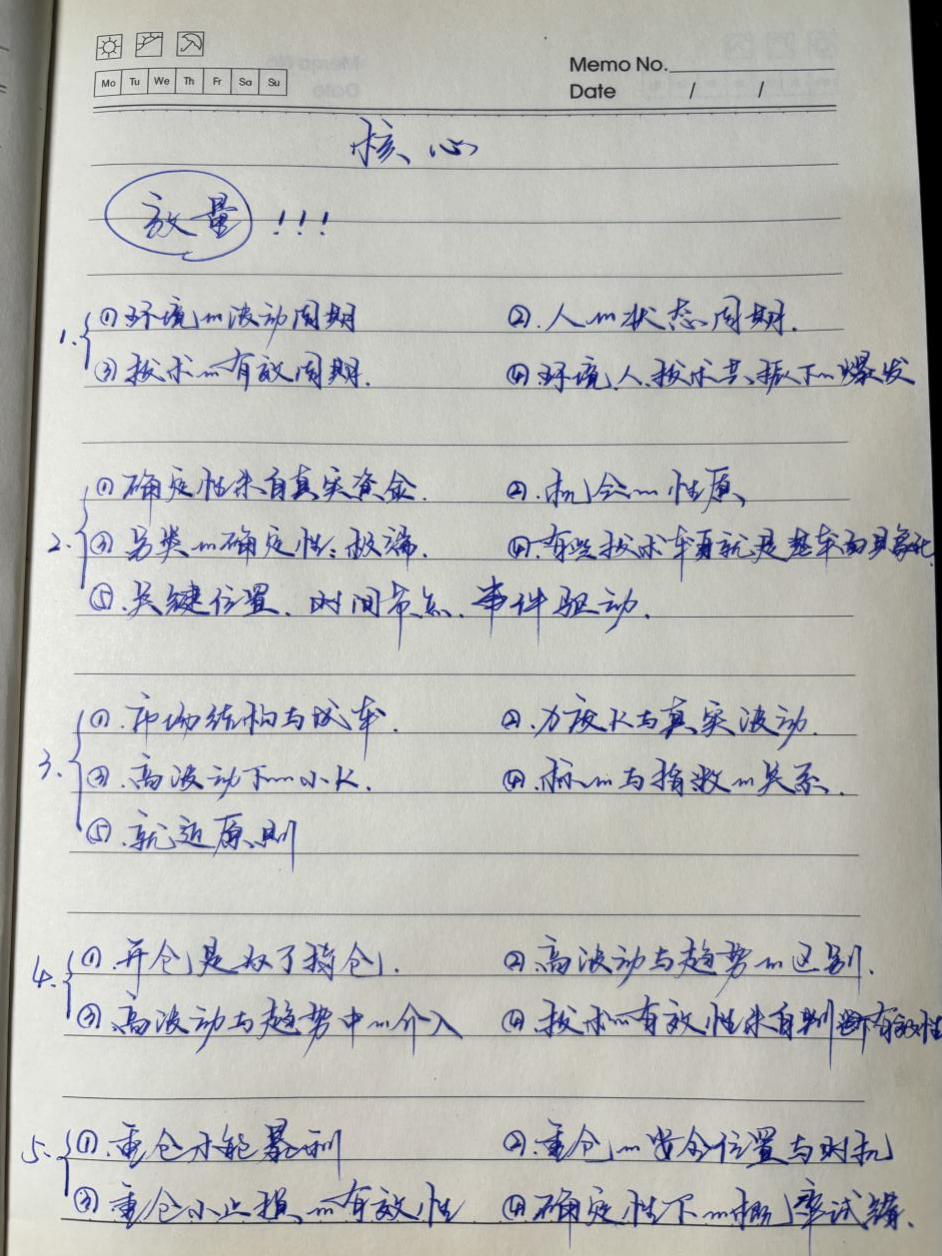 Mo Tu We Th Fr Sa Su
Memo No.
Date / /
核心
放量!!!
1. ①环境的波动周期 ②.人的状态周期.
③技术的有效周期. ④环境.人.技术共振下的爆发
2. ①确定性来自真实资金. ②.机会的性质
③另类的确定性:极端. ④.有些技术本身就是基本面具象化.
⑤.关键位置.时间节点.事件驱动.
3. ①.市场结构与成本. ②.力度K与真实波动.
③.高波动下的小K. ④.标的与指数的关系.
⑤.就近原则
4. ①.开仓是为了持仓. ②.高波动与趋势的区别.
③.高波动与趋势中的介入 ④.技术的有效性来自判断有效性
5. ①.重仓才能暴利 ②.重仓的安全位置与时机
③重仓小止损的有效性 ④确定性下的概率试错.